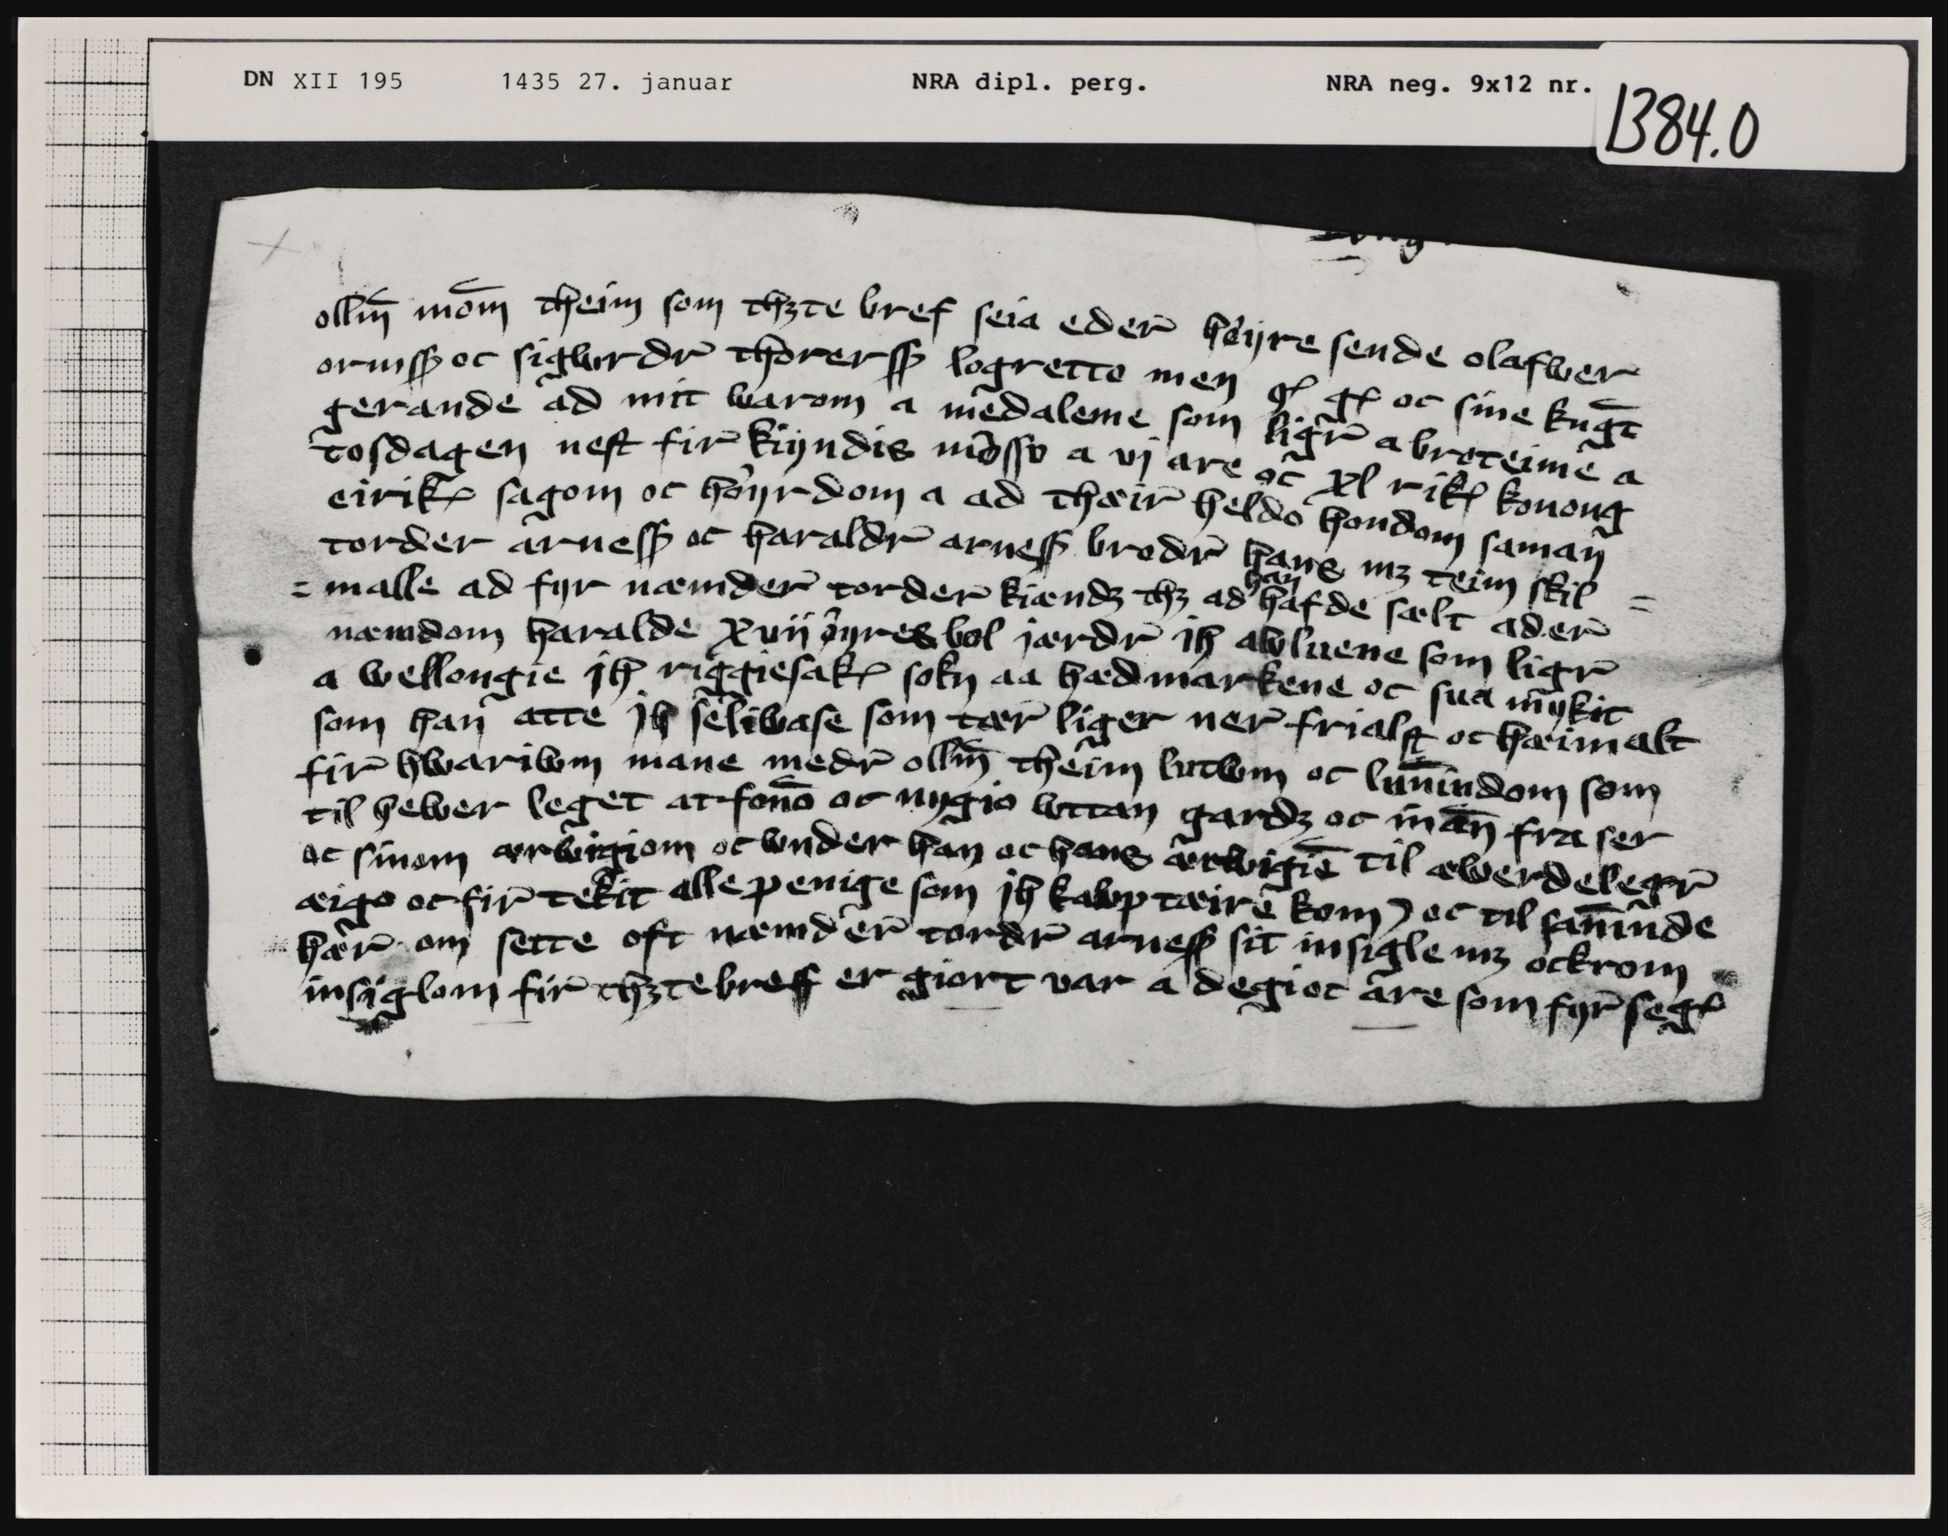 DN XII 195 1435 27. januar NRA dipl. perg. NRA neg. 9x12 nr.
1384.0
ollm̄ mom̄ theim som thꝫte bref seia eder̄ høyre sende olafwer
ormsß oc sigwrdr̄ thorersß logretto men q᷎ g᷎ oc sine kūgt
gerande ad mit warom a mēdaleme som ligr̄ a broteimē a
tosdagen nest fir̄ kyndis møsso a vj are oc xl rikß konong
eirikß sagom oc høyrdom a ad thæir̄ heldo hondom saman̄
torder arnesß oc haraldr̄ arnesß brodr̄ hans mꝫ teim skil =
= malle ad fyr næmder̄ torder kiændꝫ thꝫ ad han hafde sælt ader̄
næmdom haralde xvij øyres bol jærdr̄ ih awluene som ligr̄
a wellongie jh riggiesakß sokn aa hædmarkene oc sua mykit
som han̄ atte jh seliwase som tær̄ liger ner̄ frialst oc hæimalt
fir̄ hwariwm mane medr̄ ollm̄ theim lutwm oc lun̄indom som
til hewer leget at fōno oc nygio wttan gardꝫ oc inān fra ser
oc sinom ærwigiom oc wnder han oc hans ærwigiē til æwerdelegr̄
æigo oc fir̄ tekit alle penige som jh kawp tæirē kom) oc til san̄inde
hær̄ om sette oft næmder̄ tordr̄ arnesß sit insigle mꝫ ockrom
insiglom fir̄ thꝫte breff er giort var a degi oc are som fyr̄ segß